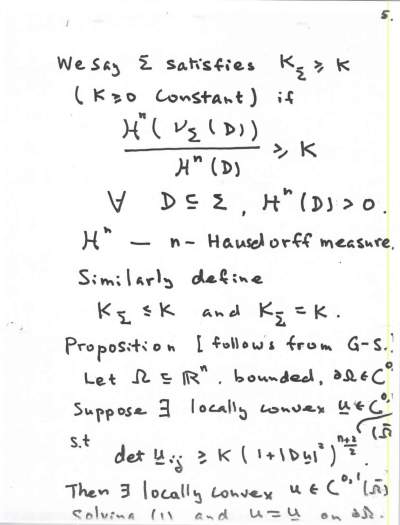 5.
We say Σ satisfies K_Σ ≥ K
(K ≥ 0 constant) if
H^n(ν_Σ(D))
H^n(D)
≥ K
∀ D ⊆ Σ, H^n(D) > 0.
H^n — n-Hausdorff measure.
Similarly define
K_Σ ≤ K and K_Σ = K.
Proposition [follows from G-S.]
Let Ω ⊆ ℝ^n. bounded, ∂Ω ∈ C^0,
Suppose ∃ locally convex u̲ ∈ C^0,
(Ω̄
s.t det u̲_ij ≥ K(1+|Du̲|²)^{n+2/2}.
Then ∃ locally convex u ∈ C^{0,1}(Ω̄)
Solving (1) and u = u̲ on ∂Ω.